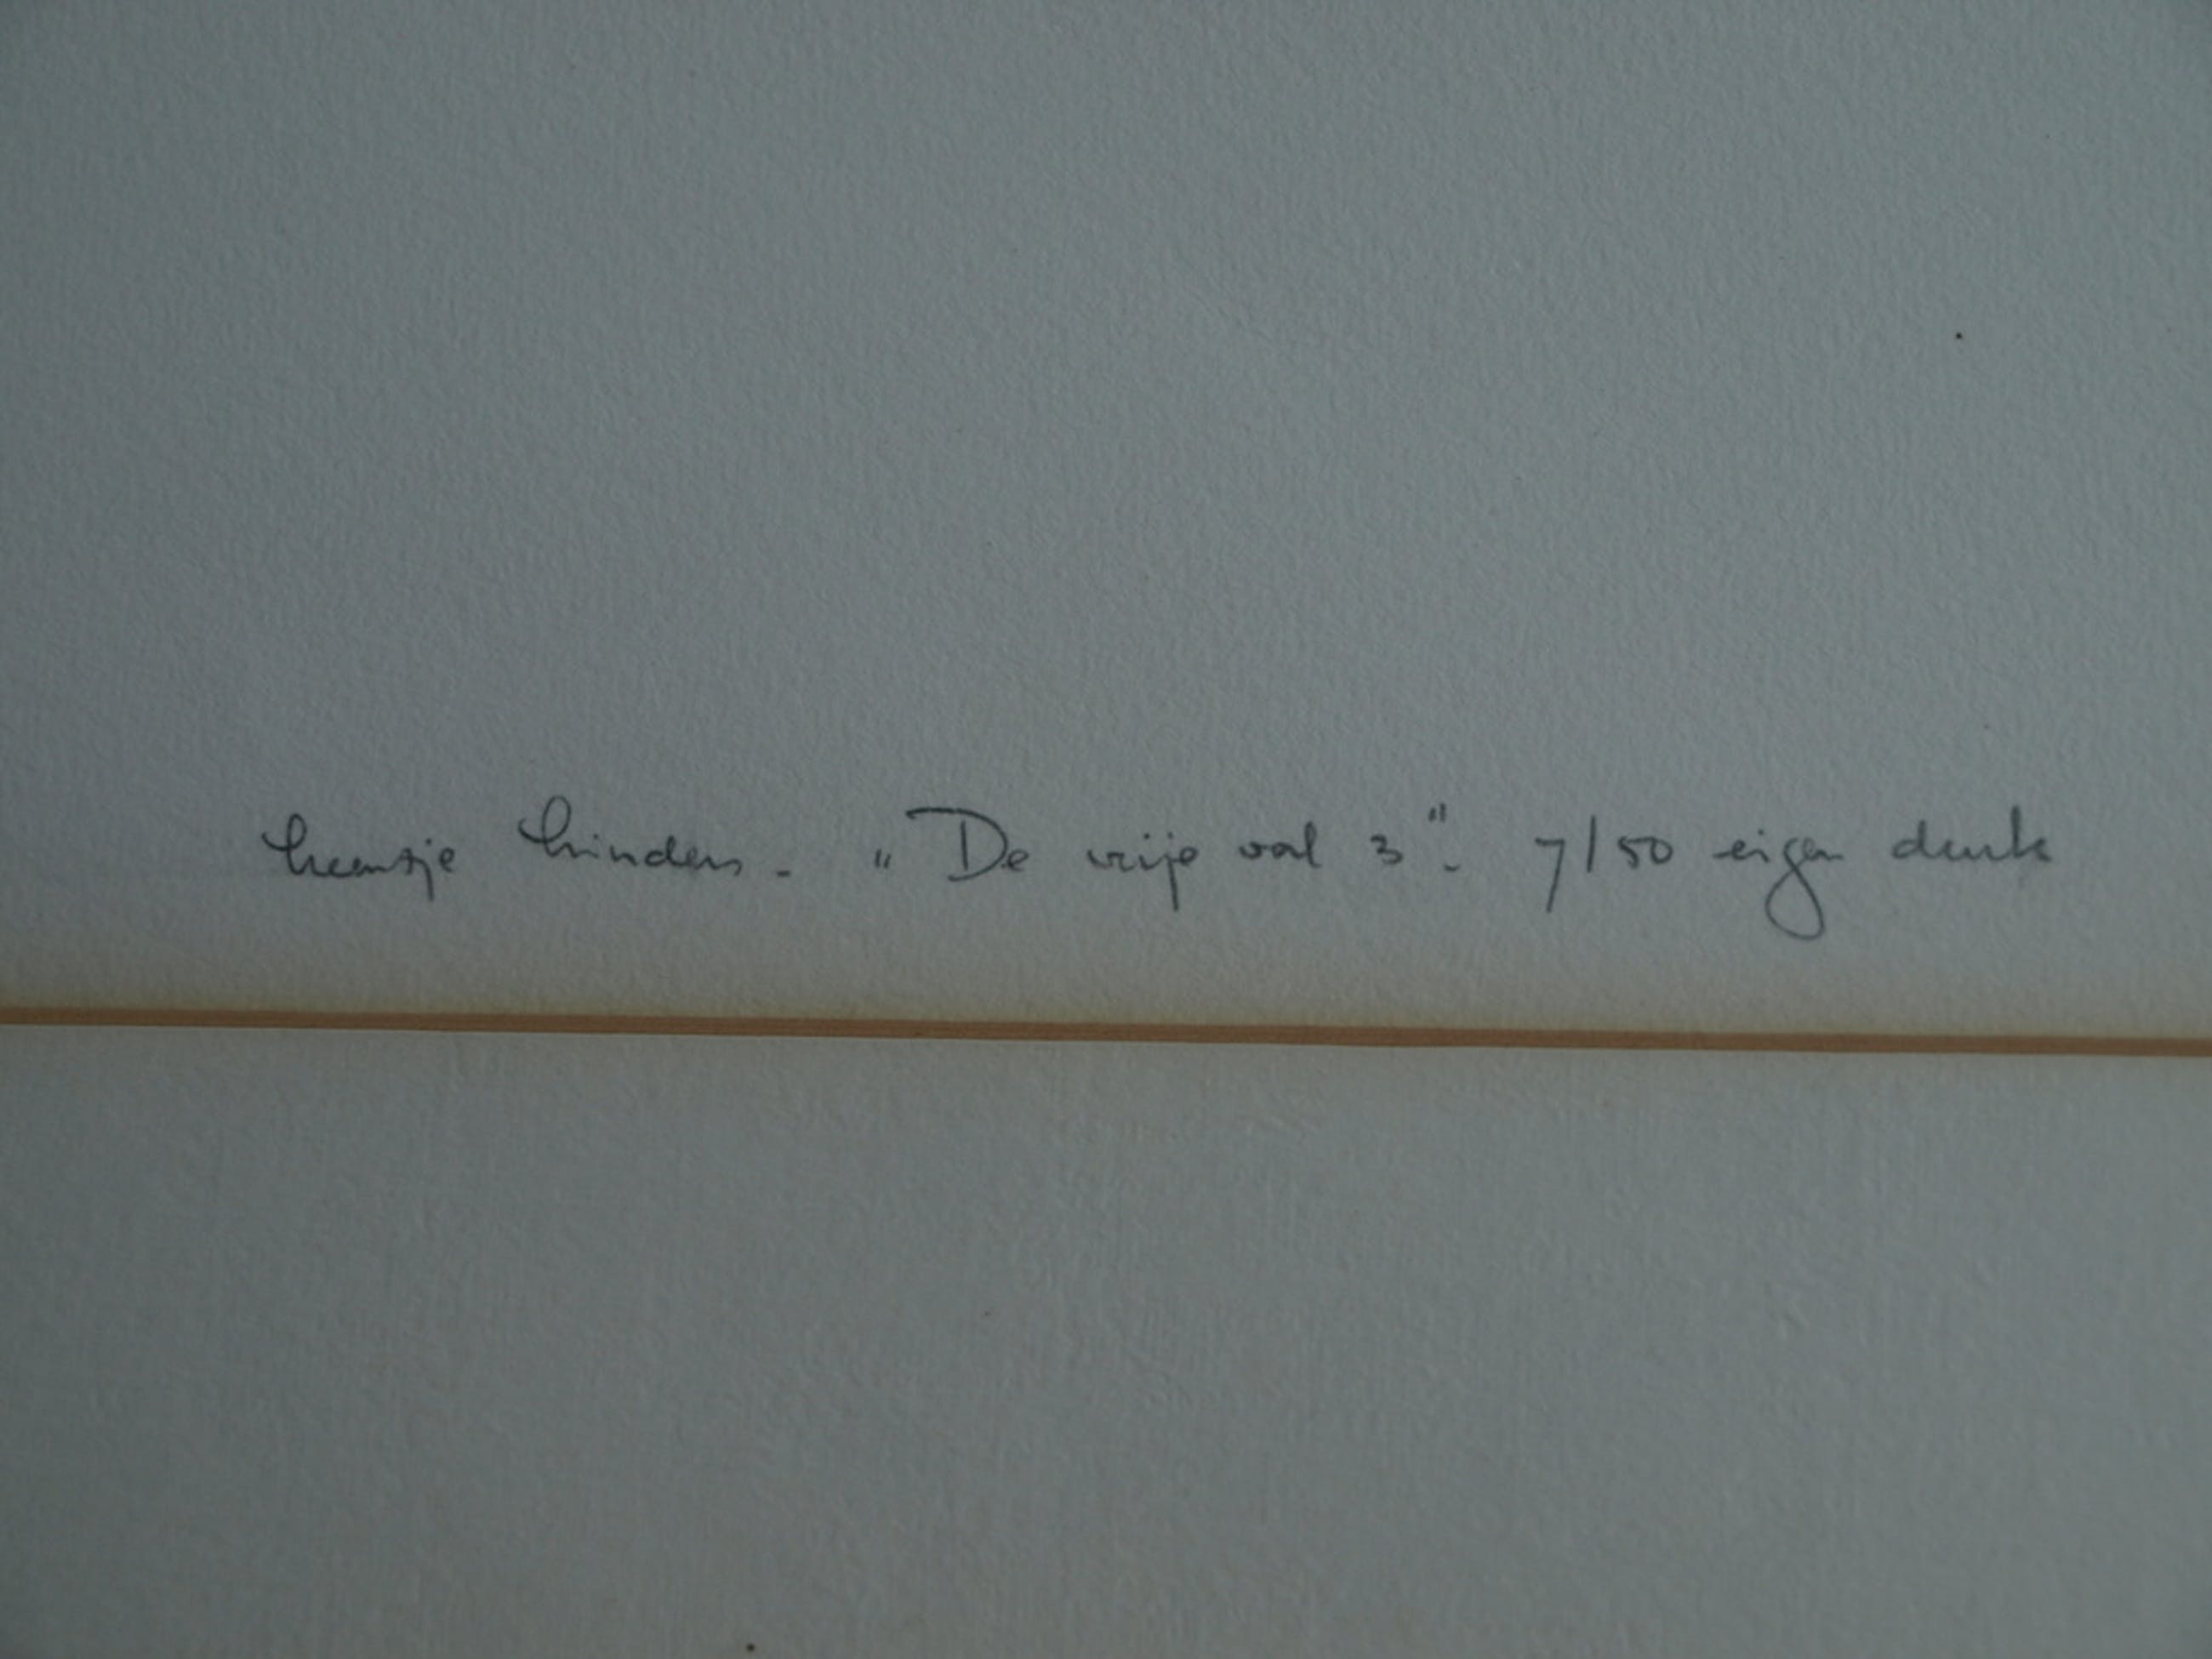 heensje hinders. „De vrije val 3". 7/50 eigen druk